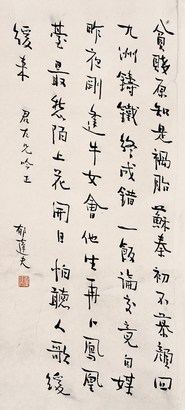 貧賤原知是禍胎蘇秦初不慕顏回
九洲鑄鐵終成錯一飯論交竟自媒
昨夜剛逢牛女會他生再卜鳳凰
臺最愁陌上花開日怕聽人歌緩
緩來
君左兄吟正
郁達夫